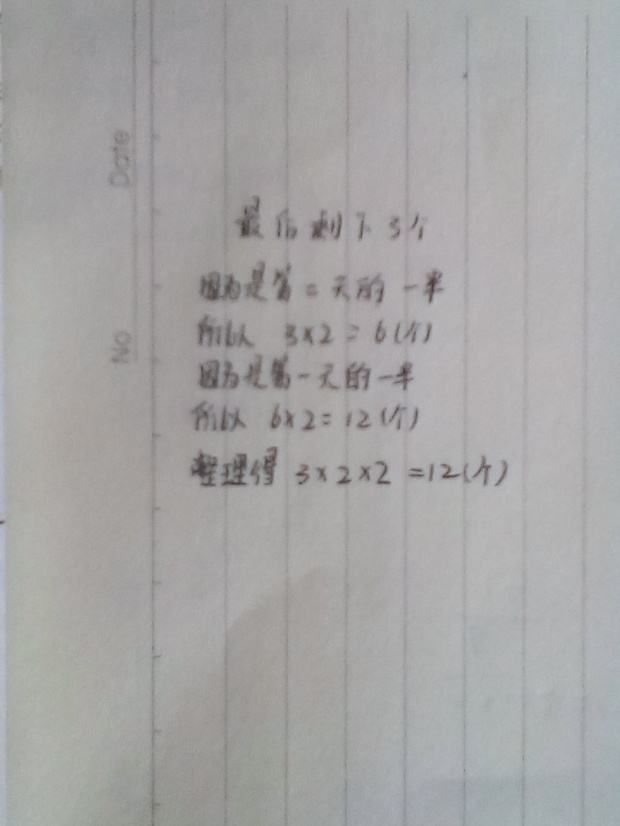 Date
No
最后剩下3个
因为是第二天的一半
所以 3×2=6(个)
因为是第一天的一半
所以 6×2=12(个)
整理得 3×2×2=12(个)